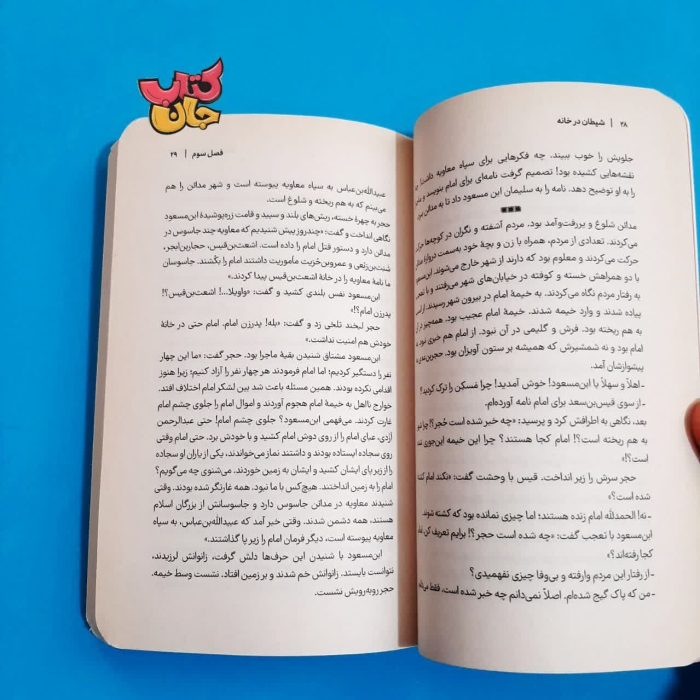 کتاب
جان
۲۸ | شیطان در خانه
جلویش را خوب ببیند. چه فکرهایی برای سپاه معاویه داشت!
نقشه‌هایی کشیده بود! تصمیم گرفت نامه‌ای برای امام بنویسد و
را به او توضیح دهد. نامه را به سلیمان ابن مسعود داد تا به مدائن
مدائن شلوغ و پررفت‌وآمد بود. مردم آشفته و نگران در کوچه‌ها
می‌کردند. تعدادی از مردم، همراه با زن و بچهٔ خود به‌سمت دروازهٔ
حرکت می‌کردند و معلوم بود که دارند از شهر خارج می‌شوند.
با دو همراهش خسته و کوفته در خیابان‌های شهر می‌رفتند و با
به رفتار مردم نگاه می‌کردند. به خیمهٔ امام در بیرون شهر رسیدند. از
پیاده شدند و وارد خیمه شدند. خیمهٔ امام عجیب بود. همه‌چیز در
به هم ریخته بود. فرش و گلیمی در آن نبود. از امام هم خبری نبود.
امام بود و نه شمشیرش که همیشه بر ستون آویزان بود. حجربن‌عدی
پیشوازشان آمد.
-اهلاً و سهلاً یا ابن‌مسعود! خوش آمدید! چرا مَسکن را ترک کردید؟
-از سوی قیس‌بن‌سعد برای امام نامه آورده‌ام.
بعد، نگاهی به اطرافش کرد و پرسید: «چه خبر شده است حُجر؟! چرا
به هم ریخته است؟! امام کجا هستند؟ چرا این خیمه این‌جوری
است؟!»
حجر سرش را زیر انداخت. قیس با وحشت گفت: «نکند امام کشته
شده است؟»
-نه! الحمدلله امام زنده هستند؛ اما چیزی نمانده بود که کشته شوند.
ابن‌مسعود با تعجب گفت: «چه شده است حجر؟! برایم تعریف کن.
کجا رفته‌اند؟»
-از رفتار این مردم وارفته و بی‌وفا چیزی نفهمیدی؟
-من که پاک گیج شده‌ام. اصلاً نمی‌دانم چه خبر شده است. فقط
فصل سوم | ۲۹
عبیدالله‌بن‌عباس به سپاه معاویه پیوسته است و شهر مدائن را هم
می‌بینم که به هم ریخته و شلوغ است.
حجر به چهرهٔ خسته، ریش‌های بلند و سپید و قامت زره‌پوشیدهٔ ابن‌مسعود
نگاهی انداخت و گفت: «چندروز پیش شنیدیم که معاویه چند جاسوس در
مدائن دارد و دستور قتل امام را داده است. اشعث‌بن‌قیس، حجاربن‌ابجر،
شبث‌بن‌ربعی و عمروبن‌حُریث ماموریت داشتند امام را بکُشند. جاسوسان
ما نامهٔ معاویه را در خانهٔ اشعث‌بن‌قیس پیدا کردند.»
ابن‌مسعود نفس بلندی کشید و گفت: «واویلا...! اشعث‌بن‌قیس؟!
پدرزن امام؟!»
حجر لبخند تلخی زد و گفت: «بله! پدرزن امام. امام حتی در خانهٔ
خودش هم امنیت نداشت.»
ابن‌مسعود مشتاق شنیدن بقیهٔ ماجرا بود. حجر گفت: «ما این چهار
نفر را دستگیر کردیم؛ اما امام فرمودند هر چهار نفر را آزاد کنیم؛ زیرا هنوز
اقدامی نکرده بودند. همین مسئله باعث شد بین لشکر امام اختلاف افتد.
خوارج نااهل به خیمهٔ امام هجوم آوردند و اموال امام را جلوی چشم امام
غارت کردند. می‌فهمی ابن‌مسعود؟ جلوی چشم امام! حتی عبدالرحمن
اَزدی، عبای امام را از روی دوش امام کشید و با خودش برد. حتی امام وقتی
روی سجاده ایستاده بودند و داشتند نماز می‌خواندند، یکی از یاران او سجاده
را از زیر پای ایشان کشید و ایشان به زمین خوردند. می‌شنوی چه می‌گویم؟
امام را به زمین انداختند. هیچ‌کس با ما نبود. همه غارتگر شده بودند. وقتی
شنیدند معاویه در مدائن جاسوس دارد و جاسوسانش از بزرگان اسلام
هستند، همه دشمن شدند. وقتی خبر آمد که عبیدالله‌بن‌عباس، به سپاه
معاویه پیوسته است، دیگر فرمان امام را زیر پا گذاشتند.»
ابن‌مسعود با شنیدن این حرف‌ها دلش گرفت، زانوانش لرزیدند،
نتوانست بایستد. زانوانش خم شدند و بر زمین افتاد. نشست وسط خیمه.
حجر روبه‌رویش نشست.